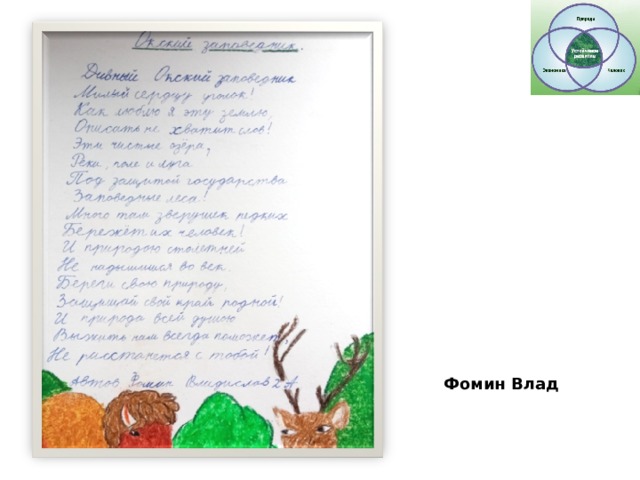 Окский заповедник.
Дивный Окский заповедник
Милый сердцу уголок!
Как люблю я эту землю,
Описать не хватит слов!
Эти чистые озёра,
Реки, поле и луга
Под защитой государства
Заповедные леса!
Много там зверушек редких
Бережёт их человек!
И природою столетней
Не надышишься во век.
Береги свою природу,
Защищай свой край родной!
И природа всей душою
Выжить нам всегда поможет,
Не расстанется с тобой!
Автор Фомин Владислав 2 А
Природа
Устойчивое развитие
Экономика
Человек
Фомин Влад